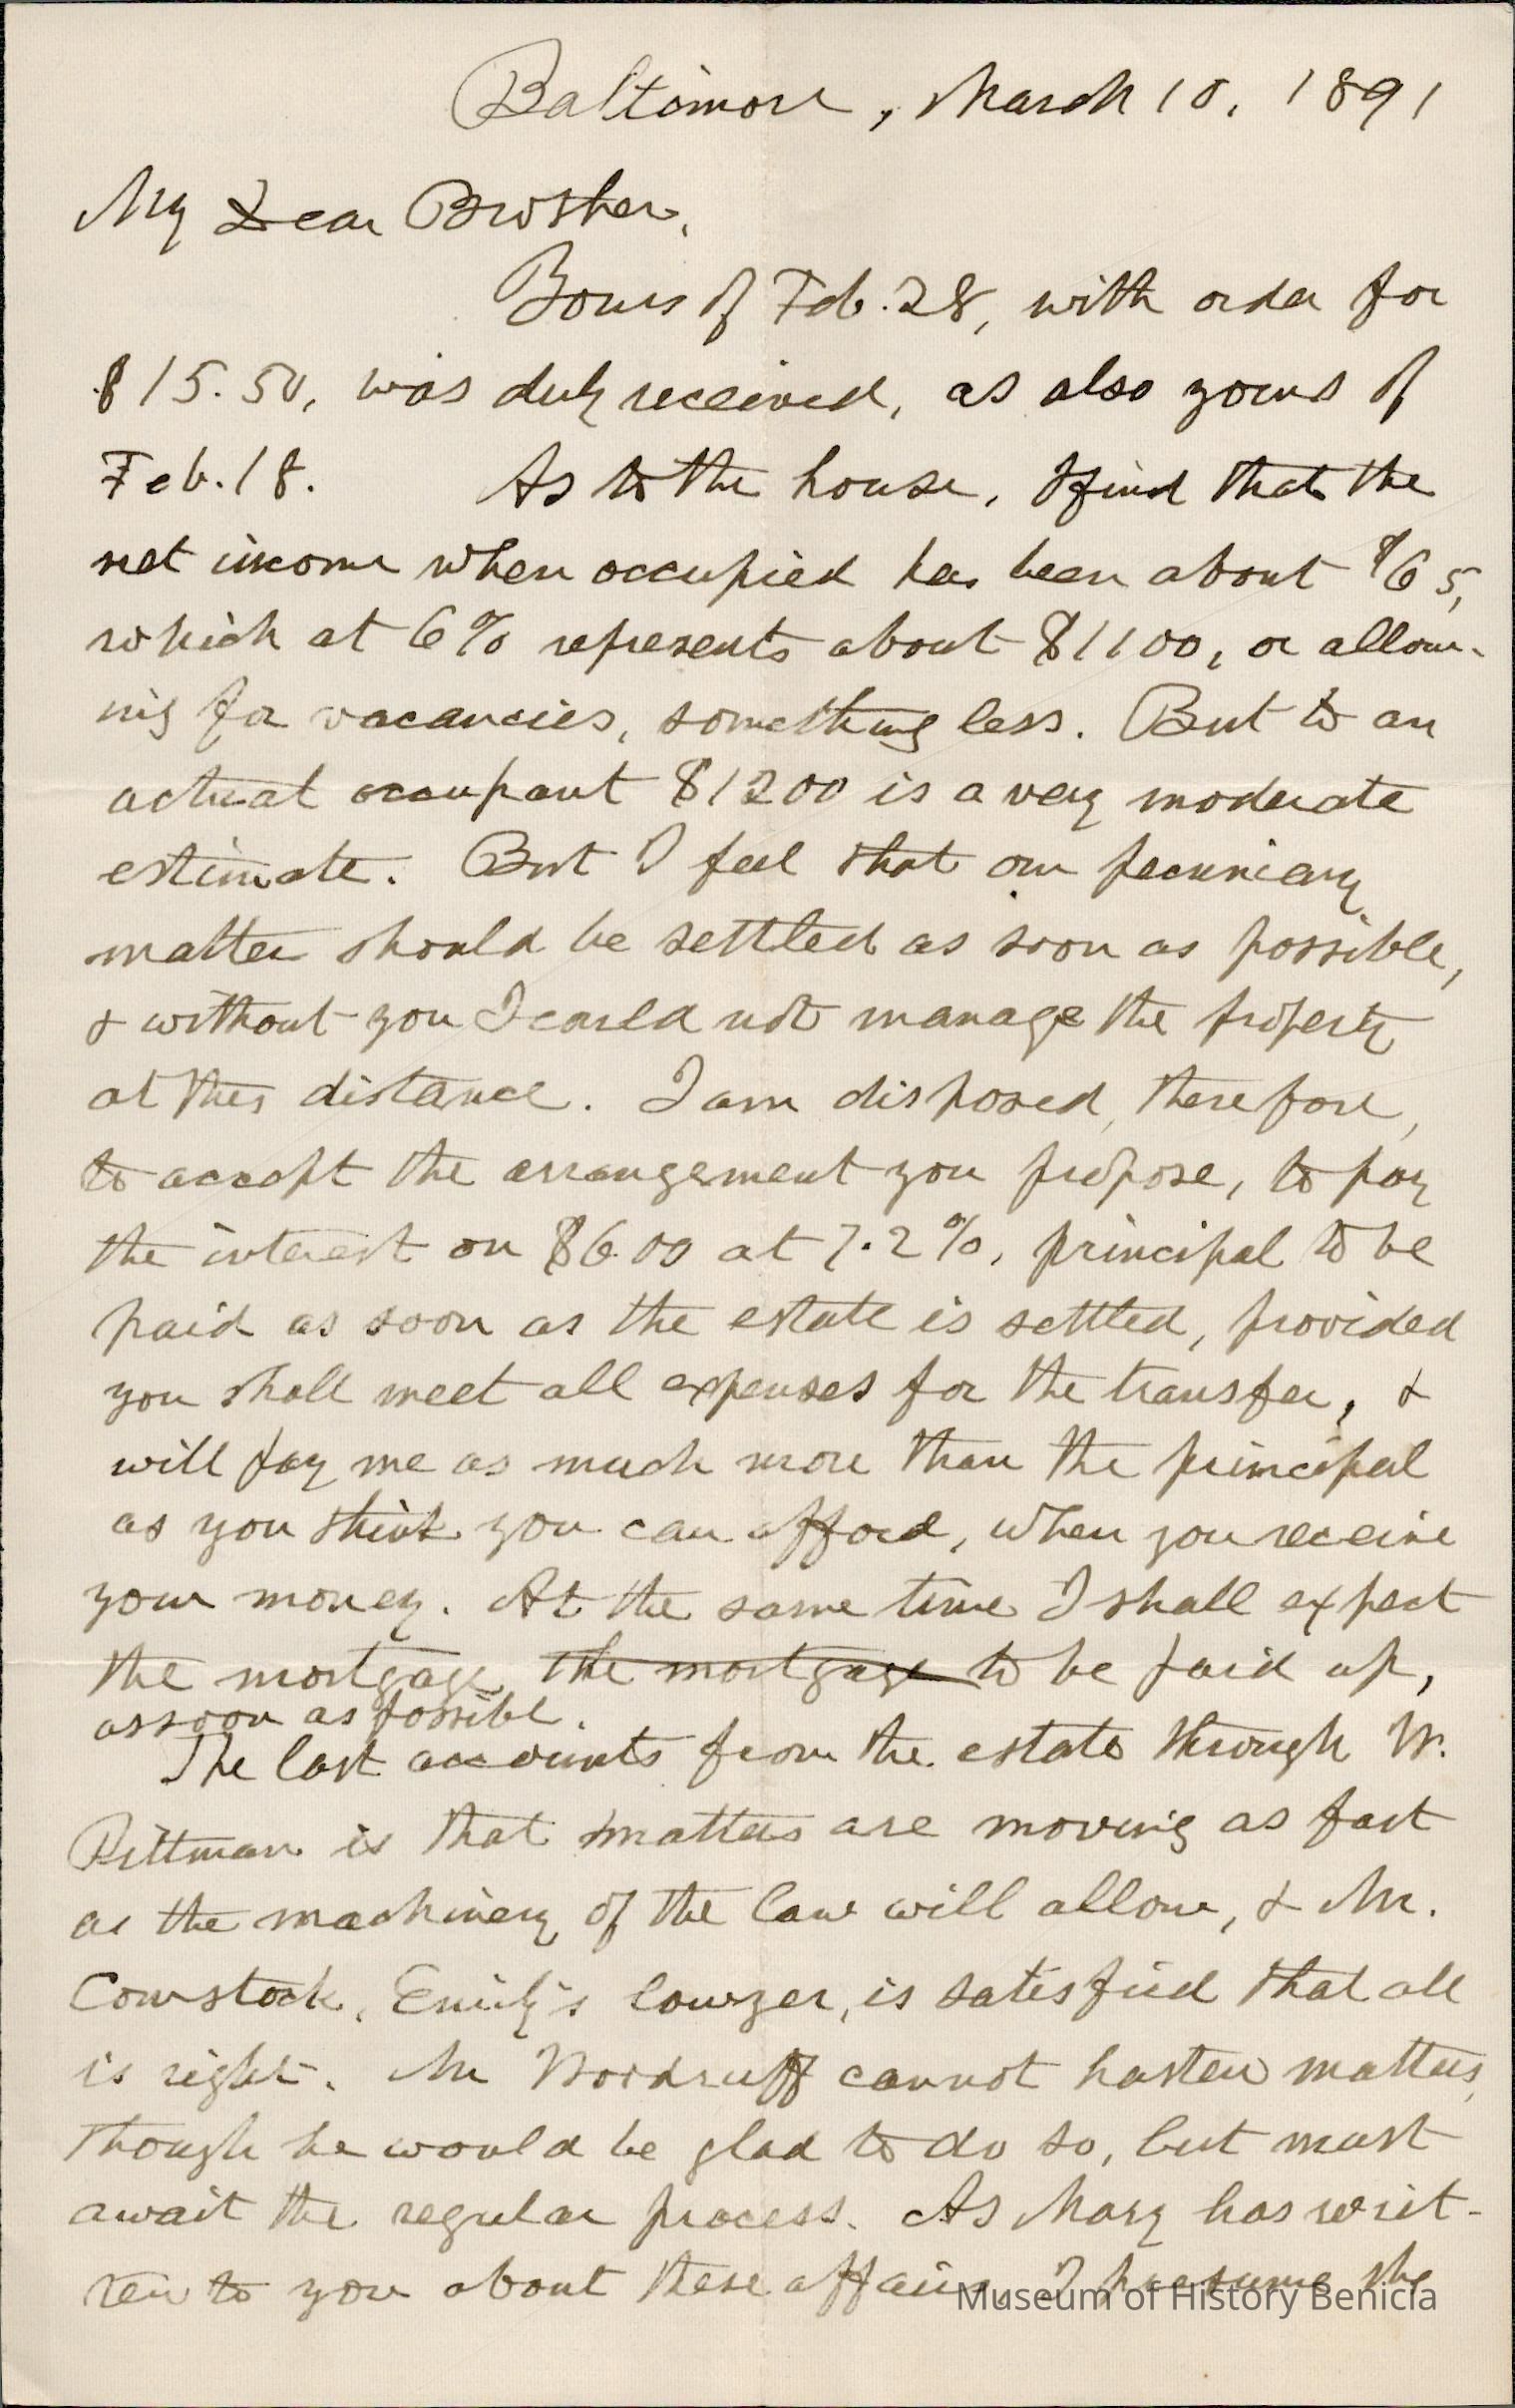 Baltimore, March 10, 1891
My Dear Brother,
Yours of Feb. 28, with order for
$15.50, was duly received, as also yours of
Feb. 18. As to the house, I find that the
net income when occupied has been about $65,
which at 6% represents about $1100, or allow-
ing for vacancies, something less. But to an
actual occupant $1200 is a very moderate
estimate. But I feel that our pecuniary
matter should be settled as soon as possible,
& without you I could not manage the property
at this distance. I am disposed, therefore,
to accept the arrangement you propose, to pay
the interest on $600 at 7.2%, principal to be
paid as soon as the estate is settled, provided
you shall meet all expenses for the transfer, &
will pay me as much more than the principal
as you think you can afford, when you receive
your money. At the same time I shall expect
the mortgage the mortgage to be paid up,
as soon as possible.
The last accounts from the estate through W.
Pittman is that matters are moving as fast
as the machinery of the law will allow, & Mr.
Comstock, Emily's lawyer, is satisfied that all
is right. Mr Woodruff cannot hasten matters,
though he would be glad to do so, but must
await the regular process. As Mary has writ-
ten to you about these affairs, I presume she
Museum of History Benicia